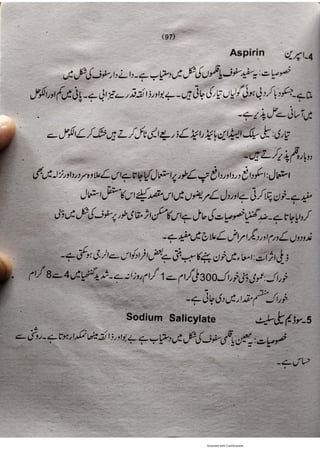 (97)
Aspirin
4۔ اسپرین
خصوصیات: یہ سفید سفوف یا قلموں کی شکل میں دستیاب ہے۔ دانے دار سفوف کی شکل میں
ملتا ہے۔ جسکو دبا کر دبی ہوئی گولیاں تیار کی جاتی ہیں۔ بے بو اور ذائقہ قدرے تیزابی ہے۔ پانی میں کم اور الکوحل
میں آسانی سے حل پذیر ہے۔
تیاری: سیلی سیلک ایسڈ این ہائیڈرائیڈ کے ذریعے ایسی ٹائل کرتے ہیں خشک کر کے الکوحل سے
دوبارہ قلم پذیر کرتے ہیں۔
استعمال: اسکو دافع درد اور دافع تپ کے طور پر استعمال کیا جاتا ہے اس کے علاوہ سر درد اور نزلہ میں بھی
مفید ہے۔ خون پتلا کرتی ہے اور دل کے مریضوں میں اس مقصد کیلئے اس کا مستقل استعمال
کروایا جاتا ہے۔ ضد گنٹھیا خصوصیات کی حامل ہے اس کا مسکن اثر مقامی طور پر سفوف کی شکل میں
غدودوں کے ورم اور دیگر امراض کے علاج میں مفید ہے۔
ذیلی اثرات: امعاء میں خون بہنے کا سبب بنتی ہے بعض افراد کو اس سے الرجی ہو سکتی ہے۔
خوراک: عمومی خوراک 300 ملی گرام سے 1 گرام روزانہ ہے۔ شدید گنٹھیا میں 4 سے 8 گرام
خوراک منقسم مقدار میں دی جاتی ہے۔
Sodium Salicylate
5۔ سوڈیم سیلی سلیٹ
خصوصیات: یہ مہین یا قلمی سفوف کی شکل میں دستیاب ہے بے بو اور ذائقہ میٹھا نمکدار ہوتا ہے۔ روشنی سے
حساس ہے۔
Scanned with CamScanner